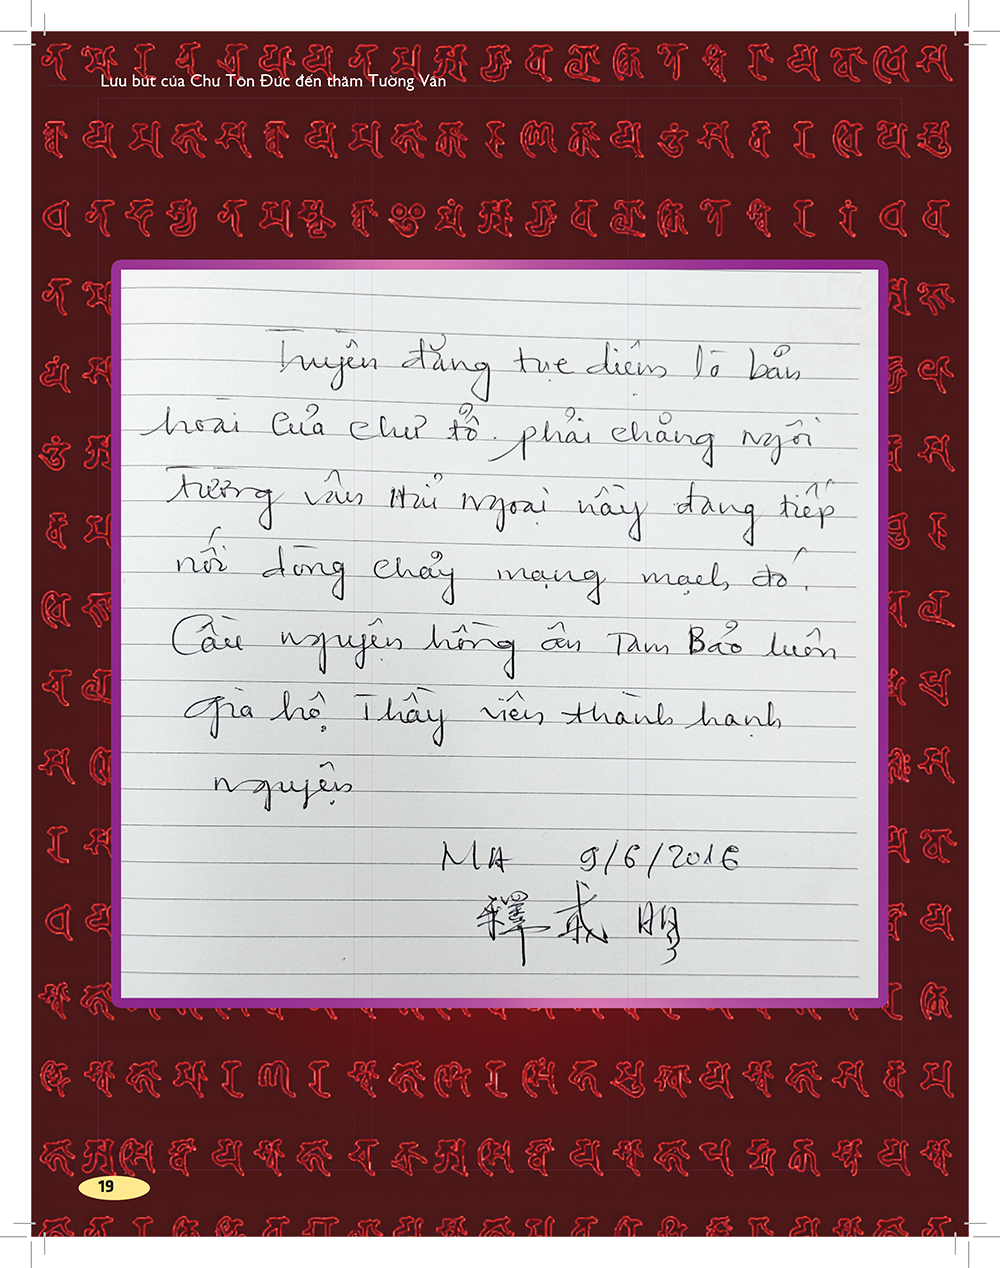 Lưu bút của Chư Tôn Đức đến thăm Tường Vân
Truyền đăng tục diệm là bản
hoài của chư tổ. phải chăng ngôi
Tường vân Hải ngoại này đang tiếp
nối dòng chảy mạng mạch đó.
Cầu nguyện hồng ân Tam Bảo luôn
gia hộ Thầy viên thành hạnh
nguyện
MA 9/6/2016
釋 戒 明
19